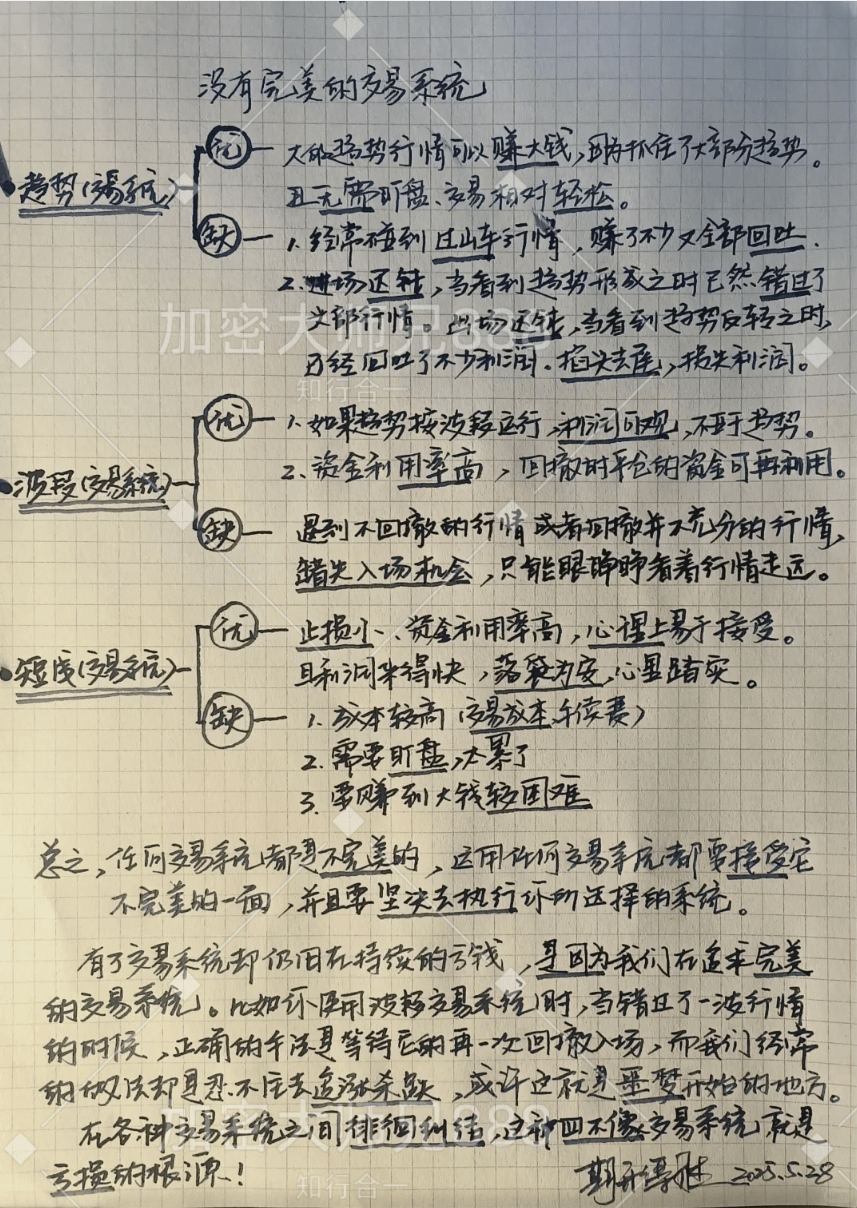 没有完美的交易系统
•趋势(交易系统)
优
大的趋势行情可以赚大钱,因为抓住了大部分趋势。
且无需盯盘、交易相对轻松。
缺
1. 经常碰到过山车行情,赚了不少又全部回吐.
2. 进场迟钝,当看到趋势形成之时已然错过了
头部行情。出场迟钝,当看到趋势反转之时,
已经回吐了不少利润.掐头去尾,损失利润。
•波段(交易系统)
优
1、如果趋势按波段运行,利润可观,不亚于趋势。
2、资金利用率高,回撤时平仓的资金可再利用。
缺
遇到不回撤的行情或者回撤并不充分的行情,
错失入场机会,只能眼睁睁看着行情走远。
•短线(交易系统)
优
止损小、资金利用率高,心理上易于接受。
且利润来得快,落袋为安,心里踏实。
缺
1. 成本较高(交易成本,手续费)
2. 需要盯盘,太累了
3. 要赚到大钱较困难
总之,任何交易系统都是不完美的,运用任何交易系统都要接受它
不完美的一面,并且要坚决去执行你所选择的系统。
有了交易系统却仍旧在持续的亏钱,是因为我们在追求完美
的交易系统。比如你使用波段交易系统时,当错过了一波行情
的时候,正确的手法是等待它的再一次回撤入场,而我们经常
的做法却是忍不住去追涨杀跌,或许这就是噩梦开始的地方。
在各种交易系统之间徘徊纠结,这种四不像交易系统就是
亏损的根源!
2025.5.28
加密大师兄888
知行合一
加密大师兄888
知行合一